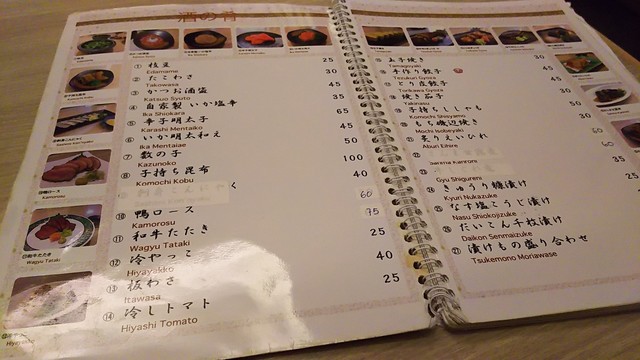 酒の肴
① 枝豆 25
Edamame
② たこわさ 30
Takowasa
③ かつお酒盗 45
Katsuo Syuto
④ 自家製 いか塩辛 35
Ika Shiokara
⑤ 辛子明太子 65
Karashi Mentaiko
⑥ いか明太和え 45
Ika Mentaiae
⑦ 数の子 50
Kazunoko
⑧ 子持ち昆布 100
Komochi Kobu
く 40
⑩ 鴨ロース 60
Kamorosu
⑪ 和牛たたき
Wagyu Tataki
⑫ 冷やっこ 25
Hiyayakko
⑬ 板わさ 40
Itawasa
⑭ 冷しトマト 25
Hiyashi Tomato
玉子焼き 30
Tamagoyaki
手作り餃子 45
Tezukuri Gyoza
とりカ餃子 45
Torikawa Gyoza
焼き茄子 30
Yakinasu
子持ちししゃも 50
Komochi Shisyamo
もち磯辺焼き 30
Mochi Isobeyaki
炙りえいひれ 50
Aburi Eihire
Gyu Shigureni
きゅうり糠漬け 35
Kyuri Nukazuke
なす塩こうじ漬け 25
Nasu Shiokojizuke
だいこん千枚漬け
Daikon Senmaizuke
㉗ 漬けもの盛り合わせ
Tsukemono Moriawase
鴨ロース
Kamorosu
和牛たたき
Wagyu Tataki